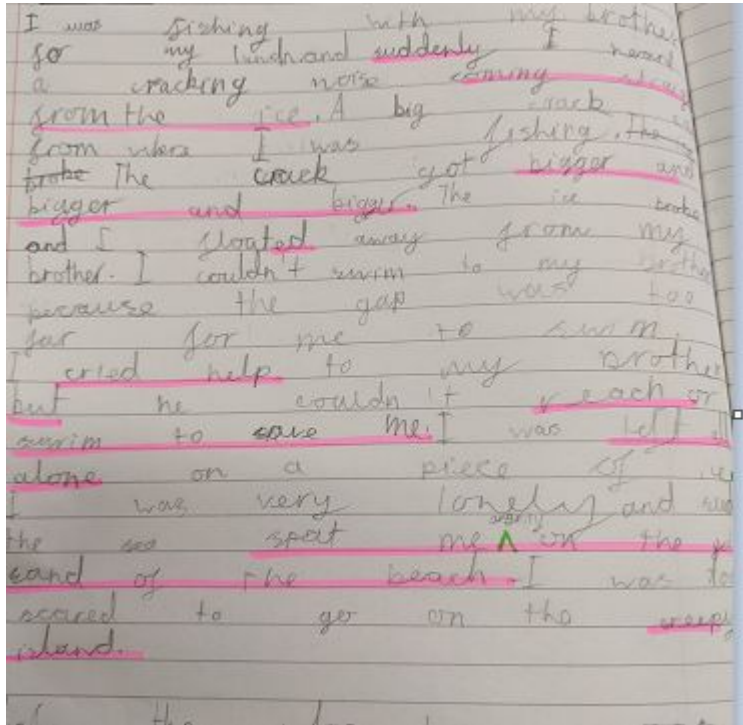 I was fishing with my brother
for my lunch and suddenly I heard
a cracking noise coming
from the ice. A big crack
from where I was fishing. The
broke The crack got bigger and
bigger and bigger. The ice broke
and I floated away from my
brother. I couldn't swim to my brother
because the gap was too
far for me to swim.
I cried help to my brother
but he couldn't reach or
swim to save me. I was left all
alone on a piece of ice
I was very lonely and
the sea spat me angrily on the
sand of the beach. I was to
scared to go on the creepy
island.
the